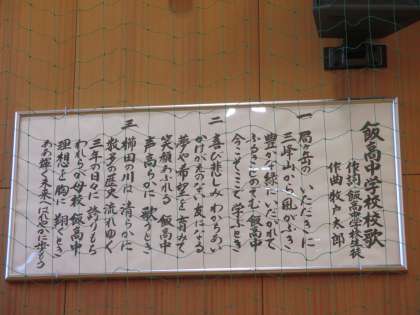 飯高中学校校歌
作詞 飯高中学校生徒
作曲 牧戸太郎
一 局が岳の いただきに
三峰山から 風がふき
豊かな緑に いだかれて
ふるさとのぞむ 飯高中
今こそここで 学ぶとき
二 喜び悲しみ わかちあい
かけがえのない 友はなる
夢や希望を 育みて
笑顔あふれる 飯高中
声高らかに 歌うとき
三 櫛田の川は 清らかに
数多の歴史 流れゆく
三年の日々に 誇りもち
われらが母校 飯高中
理想を胸に 翔くとき
ああ輝く未来へはばたこう